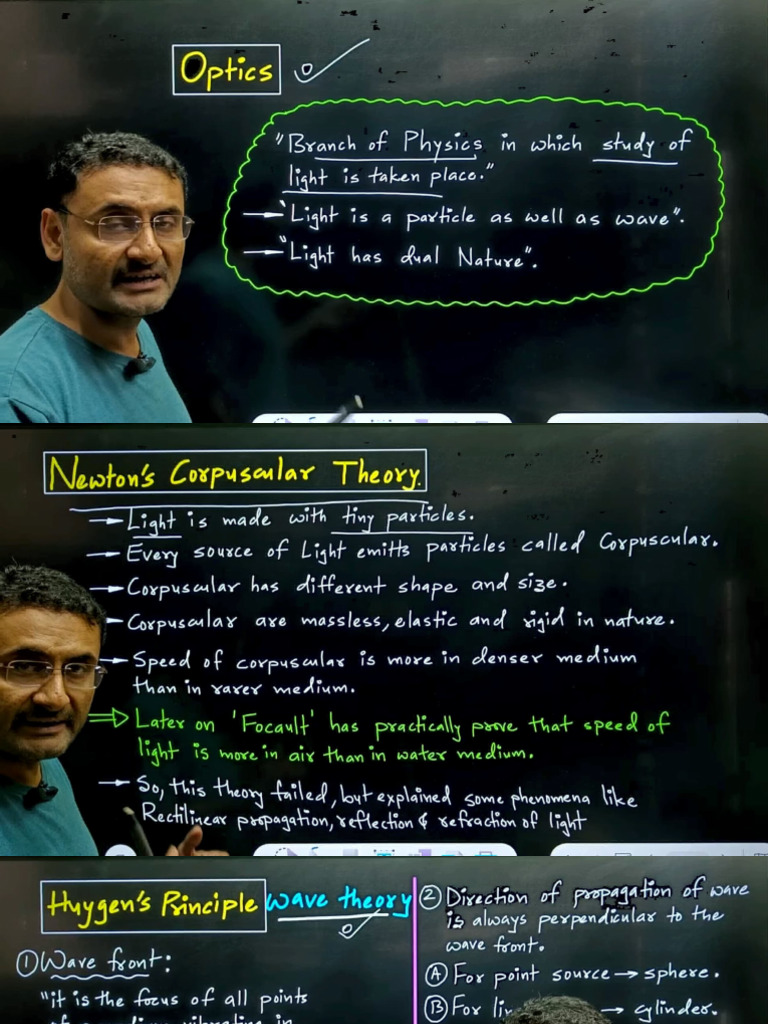 Optics
"Branch of Physics in which study of
light is taken place."
→ "Light is a particle as well as wave".
→ "Light has dual Nature".
Newton's Corpuscular Theory.
→ Light is made with tiny particles.
→ Every source of Light emitts particles called Corpuscular.
→ Corpuscular has different shape and size.
→ Corpuscular are massless, elastic and rigid in nature.
→ Speed of corpuscular is more in denser medium
than in rarer medium.
⇒ Later on 'Focault' has practically prove that speed of
light is more in air than in water medium.
→ So, this theory failed, but explained some phenomena like
Rectilinear propagation, reflection & refraction of light
Huygen's Principle wave theory
① Wave front:
"it is the focus of all points
② Direction of propagation of wave
is always perpendicular to the
wave front.
Ⓐ For point source → sphere.
Ⓑ For → cylinder.